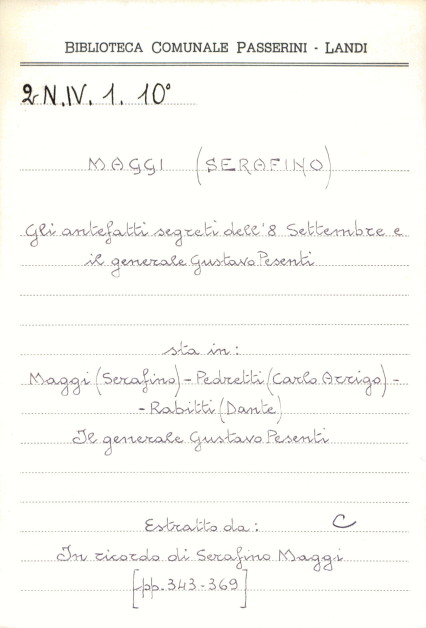 BIBLIOTECA COMUNALE PASSERINI - LANDI
2 N.IV. 1. 10°
MAGGI (SERAFINO)
Gli antefatti segreti dell'8 Settembre e
il generale Gustavo Pesenti
sta in:
Maggi (Serafino) - Pedretti (Carlo Arrigo) -
- Rabitti (Dante)
Il generale Gustavo Pesenti
Estratto da: C
In ricordo di Serafino Maggi
[pp. 343-369]